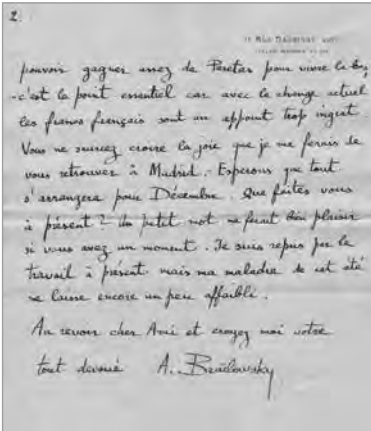 2.
pouvoir gagner assez de Pesetas pour vivre là-bas,
- c'est le point essentiel car avec le change actuel
les francs français sont un appoint trop ingrat.
Vous ne sauriez croire la joie que je me ferais de
vous retrouver à Madrid. Esperons que tout
s'arrangera pour Décembre. Que faites vous
à présent ? Un petit mot me ferait bien plaisir
si vous avez un moment. Je suis repris par le
travail à présent mais ma maladie de cet été
me laisse encore un peu affaibli.
Au revoir cher Ami et croyez moi votre
tout devoué A. Braïlowsky